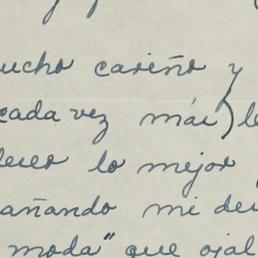 ucho cariño y
cada vez más) le
deseo lo mejor
añando mi de
moda" que ojal